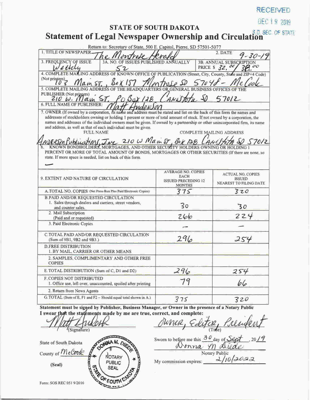 RECEIVED
DEC 19 2019
S.D. SEC. OF STATE
STATE OF SOUTH DAKOTA
Statement of Legal Newspaper Ownership and Circulation
Return to: Secretary of State, 500 E Capitol, Pierre, SD 57501-5077
1. TITLE OF NEWSPAPER The Montrose Herald
2. DATE 9-30-19
3. FREQUENCY OF ISSUE Weekly
3A. NO. OF ISSUES PUBLISHED ANNUALLY 52
3B. ANNUAL SUBSCRIPTION PRICE $
4. COMPLETE MAILING ADDRESS OF KNOWN OFFICE OF PUBLICATION (Street, City, County, State and ZIP+4 Code)
(Not printers)
5. COMPLETE MAILING ADDRESS OF THE HEADQUARTERS OR GENERAL BUSINESS OFFICES OF THE
PUBLISHER (Not printers)
210 W. Main St. PO Box 128, Canistota SD 57012
6. FULL NAME OF PUBLISHER: Matt Anderson
7. OWNER (If owned by a corporation, its name and address must be stated and also on the back of this form the names and
addresses of stockholders owning or holding 1 percent or more of total amount of stock. If not owned by a corporation, the
names and addresses of the individual owners must be given. If owned by a partnership or other unincorporated firm, its name
and address, as well as that of each individual must be given.
FULL NAME
COMPLETE MAILING ADDRESS
Anderson Publications, Inc. 210 W Main St, Box 128 Canistota SD 57012
8. KNOWN BONDHOLDERS, MORTGAGES, AND OTHER SECURITY HOLDERS OWNING OR HOLDING 1
PERCENT OR MORE OF TOTAL AMOUNT OF BONDS, MORTGAGES OR OTHER SECURITIES (If there are none, so
state. If more space is needed, list on back of this form.
9. EXTENT AND NATURE OF CIRCULATION
AVERAGE NO. COPIES EACH ISSUED PRECEDING 12 MONTHS
ACTUAL NO. COPIES ISSUED NEAREST TO FILING DATE
A. TOTAL NO. COPIES (Net Press Run Plus Paid Electronic Copies) 375 320
B. PAID AND/OR REQUESTED CIRCULATION
1. Sales through dealers and carriers, street vendors,
and counter sales. 30 30
2. Mail Subscription
(Paid and or requested) 266 224
3. Paid Electronic Copies
C. TOTAL PAID AND/OR REQUESTED CIRCULATION
(Sum of 9B1, 9B2 and 9B3.) 296 254
D. FREE DISTRIBUTION
1. BY MAIL, CARRIER OR OTHER MEANS
2. SAMPLES, COMPLIMENTARY AND OTHER FREE
COPIES
E. TOTAL DISTRIBUTION (Sum of C, D1 and D2) 296 254
F. COPIES NOT DISTRIBUTED
1. Office use, left over, unaccounted, spoiled after printing 79 66
2. Return from News Agents
G. TOTAL (Sum of E, F1 and F2 - Should equal total shown in A.) 375 320
Statement must be signed by Publisher, Business Manager, or Owner in the presence of a Notary Public
I swear that the statements made by me are true, correct, and complete:
Matt Anderson
Owner, Editor, President
(Signature)
(Title)
State of South Dakota
County of McCook
(Seal)
DONNA M. EHEDE
NOTARY
PUBLIC
SEAL
SOUTH DAKOTA
Sworn to before me this 30 day of Sept 2019
Notary Public
My commission expires: 2/10/2022
Form: SOS REC 051 9/2016